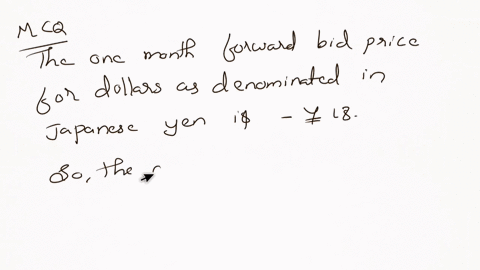 MCQ
The one month forward bid price
for dollars as denominated in
Japanese yen is - ¥ 18.
So, the